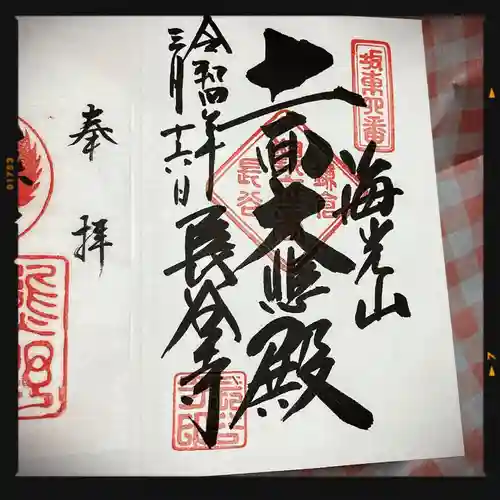 坂東四番
海光山
十一面大悲殿
鎌倉
長谷
令和四年
三月十六日
長谷寺
奉拝
01753
7